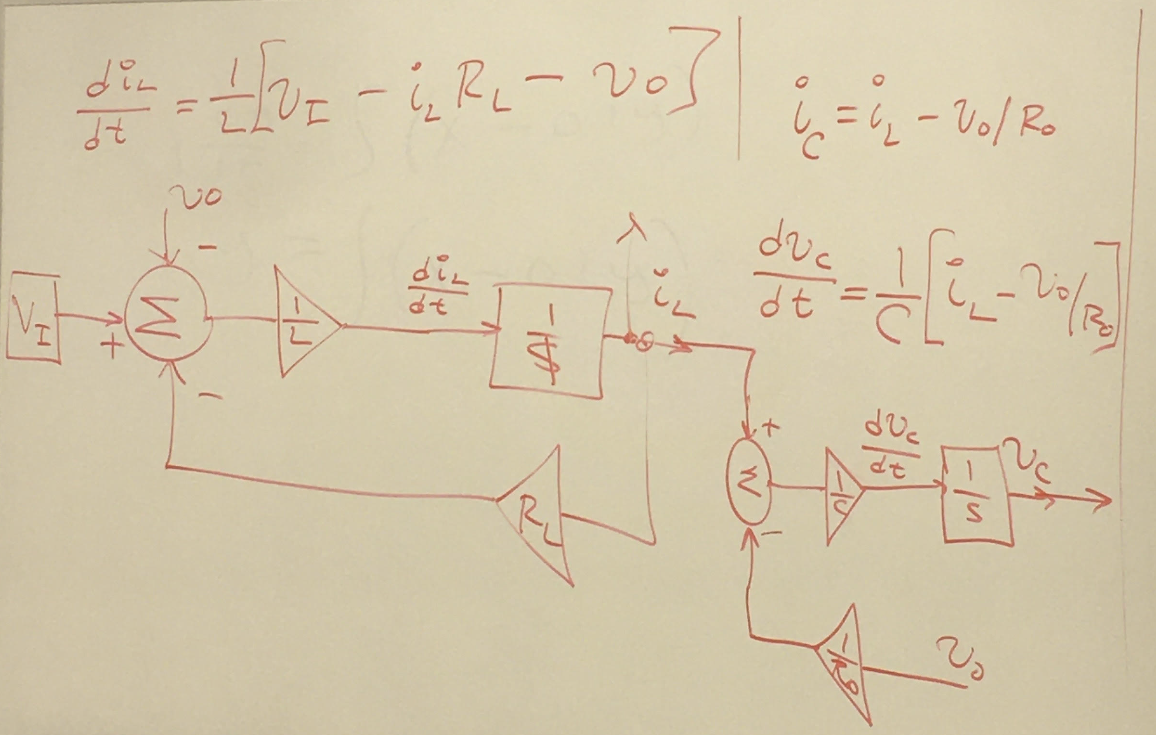 di_L/dt = 1/L [v_I - i_L R_L - v_o]
i_C = i_L - v_o/R_o
dv_C/dt = 1/C [i_L - v_o/R_o]
v_o
-
V_I
+
Σ
-
1/L
di_L/dt
1/s
i_L
R_L
+
Σ
-
1/C
dv_C/dt
1/s
v_C
1/R_o
v_o